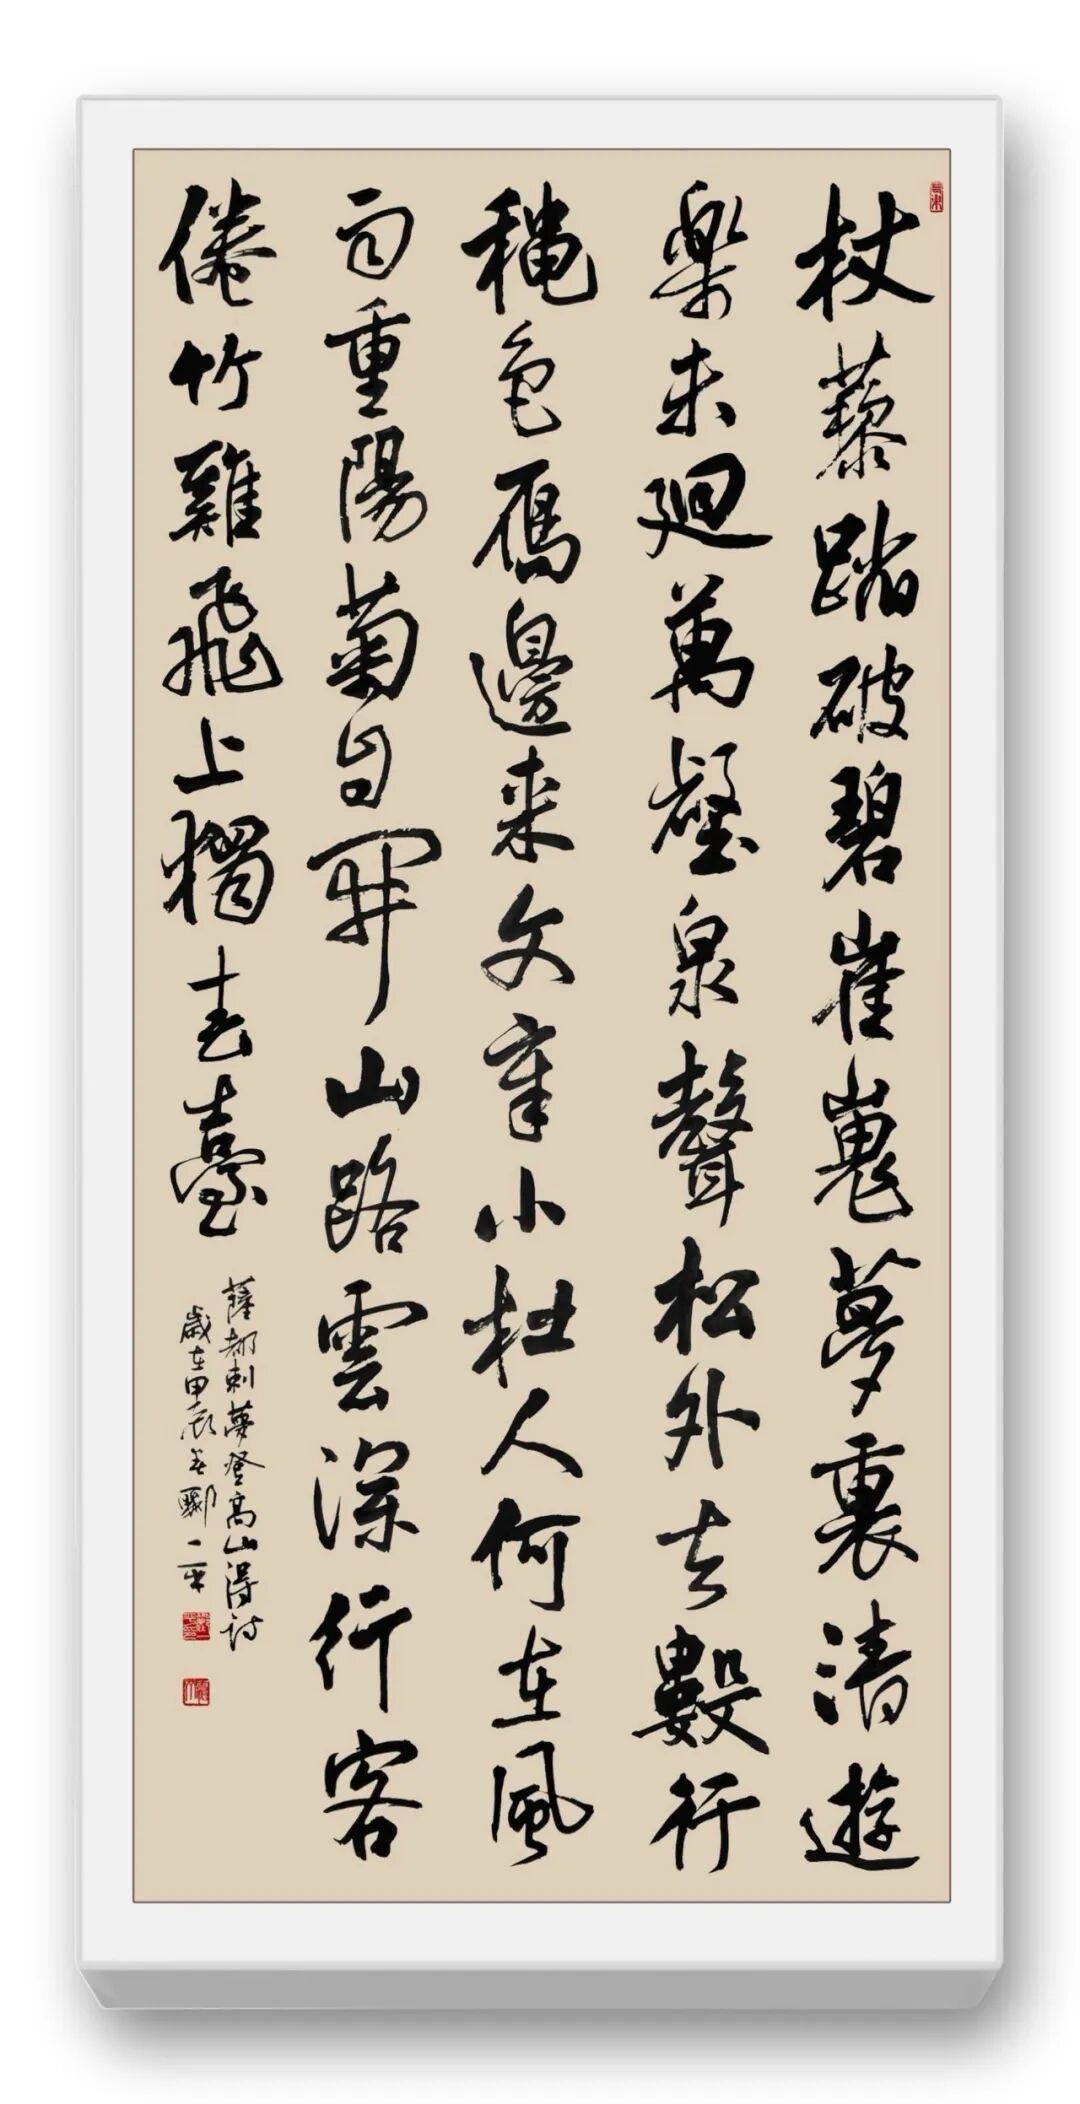 杖藜踏破碧崔嵬夢裏清遊
樂未迴萬壑泉聲松外去數行
穐色雁邊来文章小杜人何在風
雨重陽菊自開山路雲深行客
倦竹雞飛上臺
薩都剌夢登高山得詩
歲在甲辰春酈一平